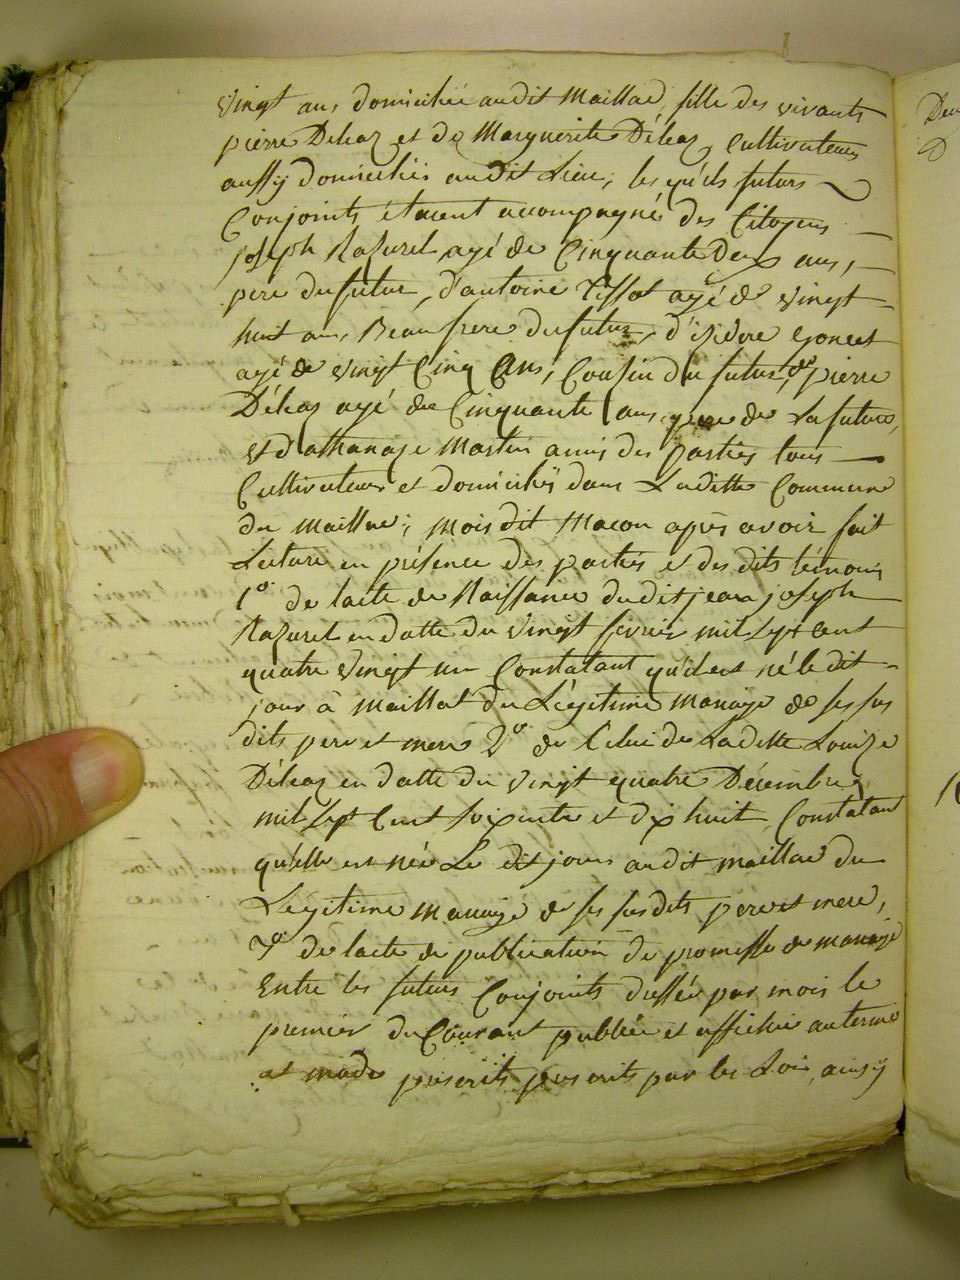 vingt ans, domiciliée audit Maillac, fille des vivants
pierre Déléaz et de Marguerite Déléaz, Cultivateurs
aussÿ domiciliés audit Lieu, les quels futurs
Conjoints étaient accompagné des Citoyens
joseph Razurel agé de Cinquante Deux ans,
pere du futur, d'antoine Tissot agé de vingt
huit ans, Beau frere du futur, d'isidore Goncet
agé de vingt Cinq Ans, Cousin du futur, de pierre
Déléaz agé de Cinquante ans, pere de La future,
et d'athanaze Martin amis des parties tous
Cultivateurs et domiciliés dans Laditte Commune
du maillac; mois dit Maçon après avoir fait
Lecture en présence des parties et des dits témoins
1º de lacte de Naissance dudit jean joseph
Razurel en datte du vingt février mil sept cent
quatre vingt un Constatant qu'il est né le dit
jour à Maillat du Légitime mariage de ses sus
dits pere et mere 2º de Celui de Laditte Louize
Déléaz en datte du vingt quatre Décembre
mil sept Cent soixante et dix huit, Constatant
qu'elle est née Le dit jour audit maillac du
Légitime Mariage de ses susdits pere et mere,
3º de lacte de publication de promesse de mariage
Entre les futurs Conjoints dressée par mois le
premier du Courant publiée et affichée au terme
et mode prescrits par les Lois, ainsÿ